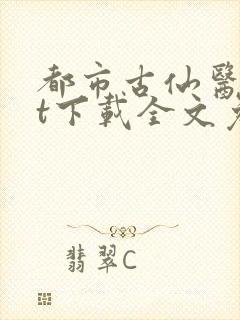 都市古仙醫
t下載全文
翡翠C